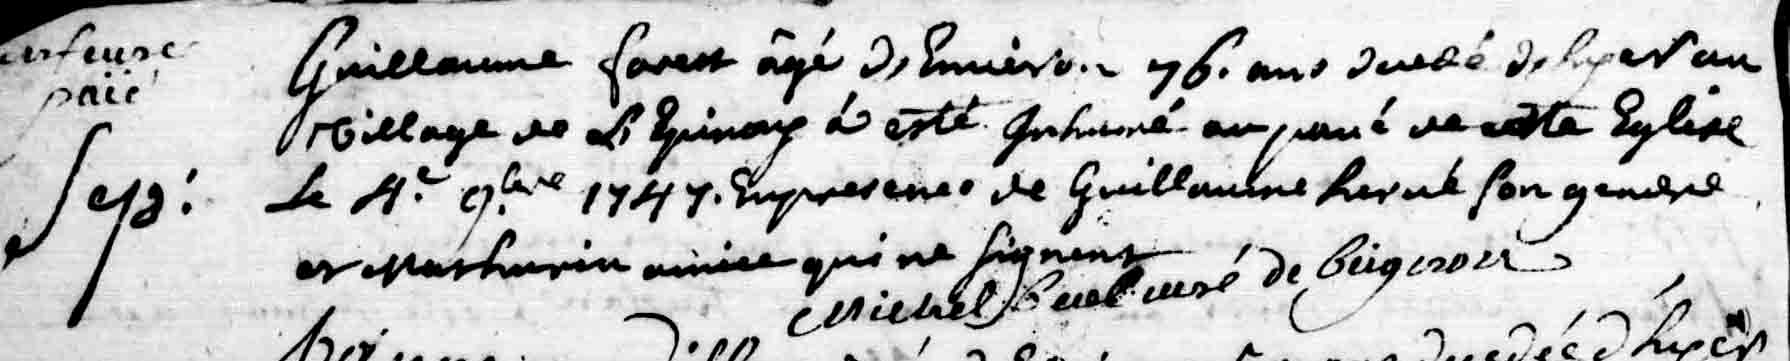 paié
Guillaume forest âgé d'Environ 76. ans decedé d'hyer au
Village de L'Epinay à esté Inhumé au pavé de cette Eglise
sep.
Le 4.e 9.bre 1747. En presence de Guillaume hervé son gendre
et Mathurin amice qui ne signent
Michel curé de bignon